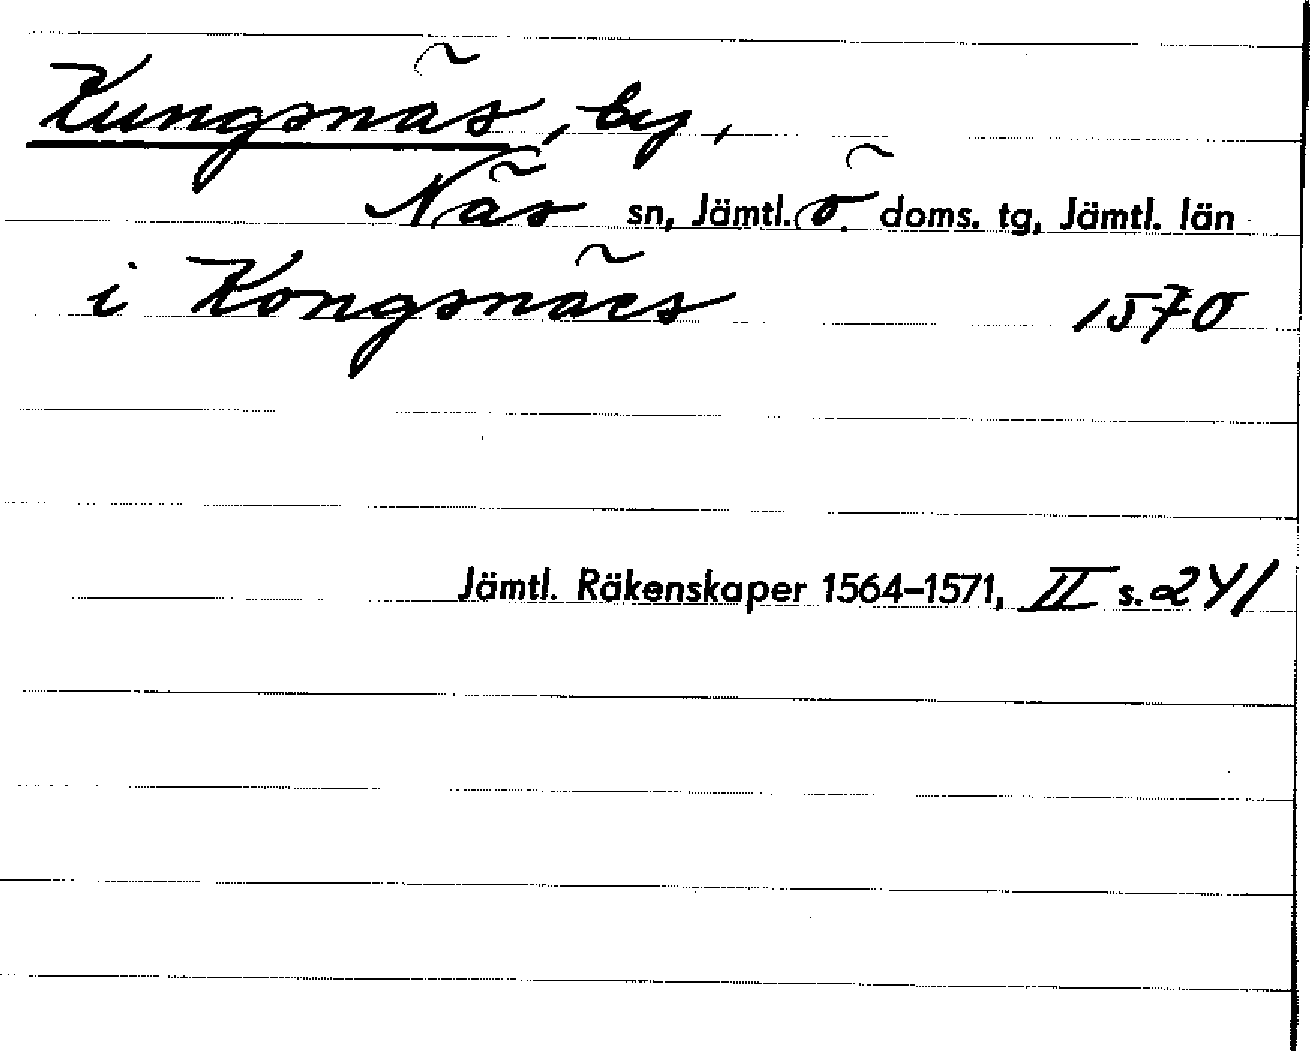 Kungsnäs, by,
Näs sn, Jämtl. ö. doms. tg, Jämtl. län
i Kongsnäes 1570
Jämtl. Räkenskaper 1564–1571, II s. 241